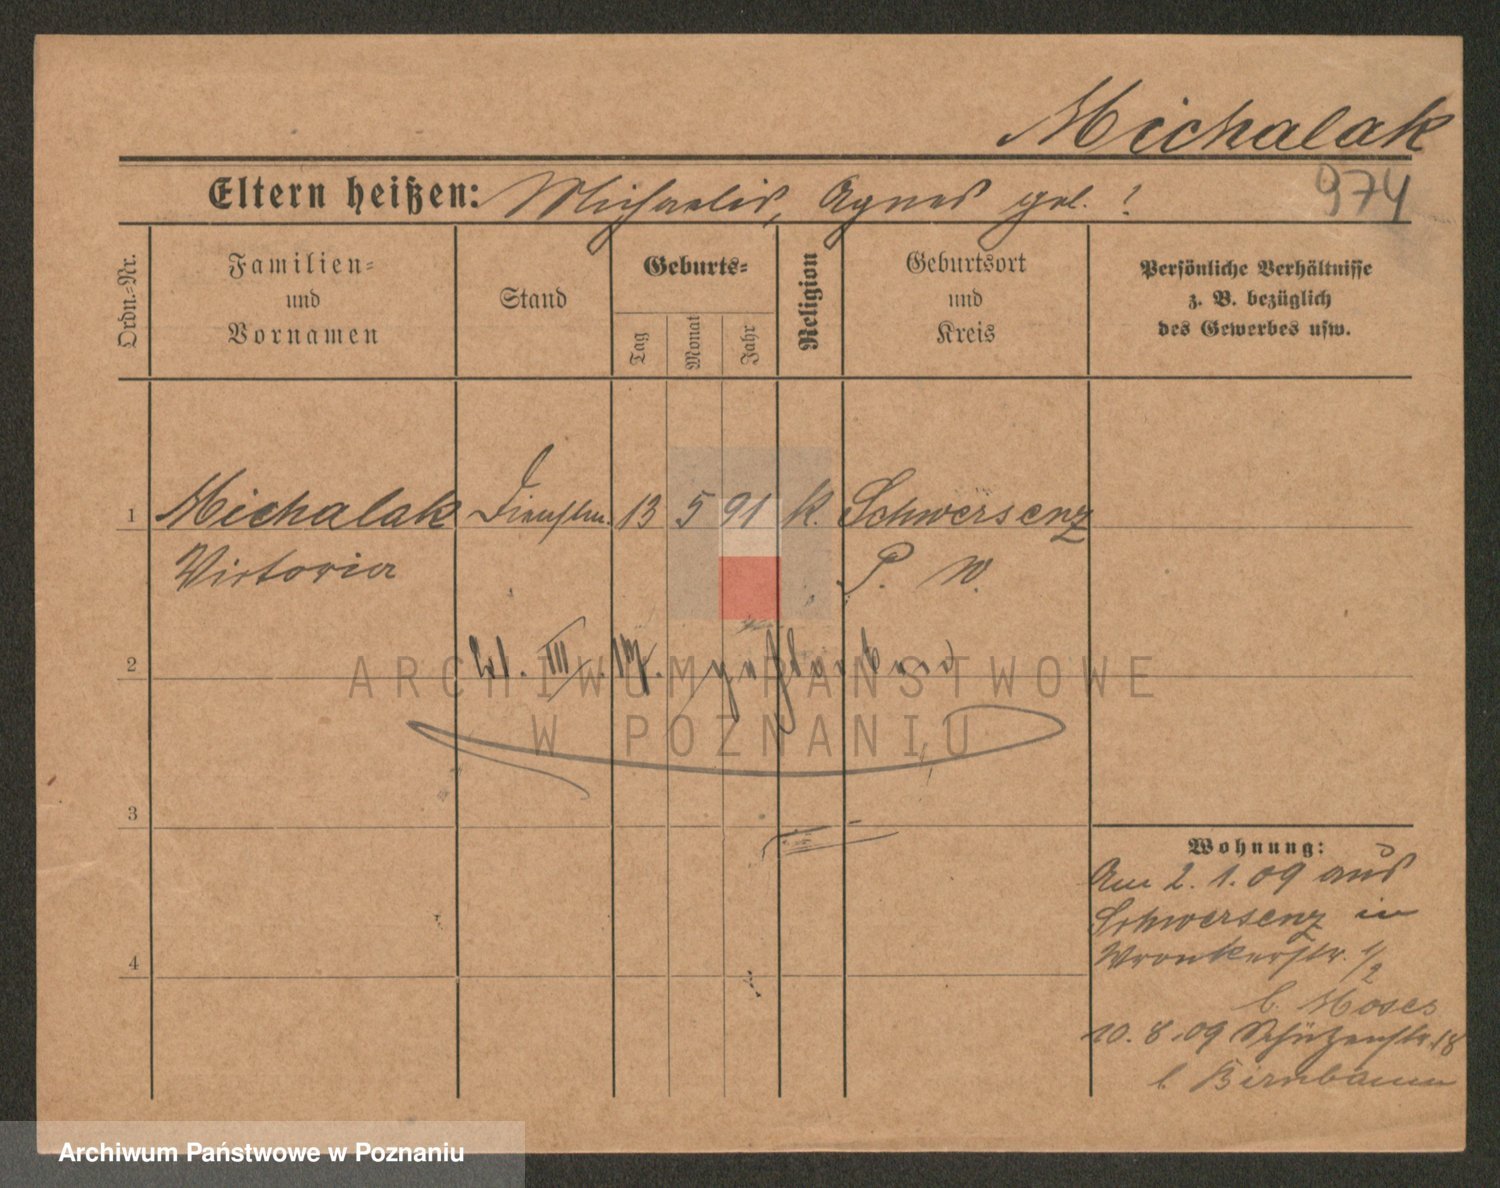 Michalak
Eltern heißen: Michaelis, Agnes geb. ?
974
Ordn.=Nr.
Familien=
und
Vornamen
Stand
Geburts=
Tag
Monat
Jahr
Religion
Geburtsort
und
Kreis
Persönliche Verhältnisse
z. B. bezüglich
des Gewerbes usw.
1 Michalak Dienstm. 13 5 91 k. Schwersenz
Victoria P. W.
2 III. 17. gestorben
ARCHIWUM PAŃSTWOWE
W POZNANIU
3
Wohnung:
Am 2.1.09 aus
Schwersenz in
Wronkerstr. 1/2
4
b. Moses
10.8.09 Schützenstr. 18
b. Birnbaum
Archiwum Państwowe w Poznaniu